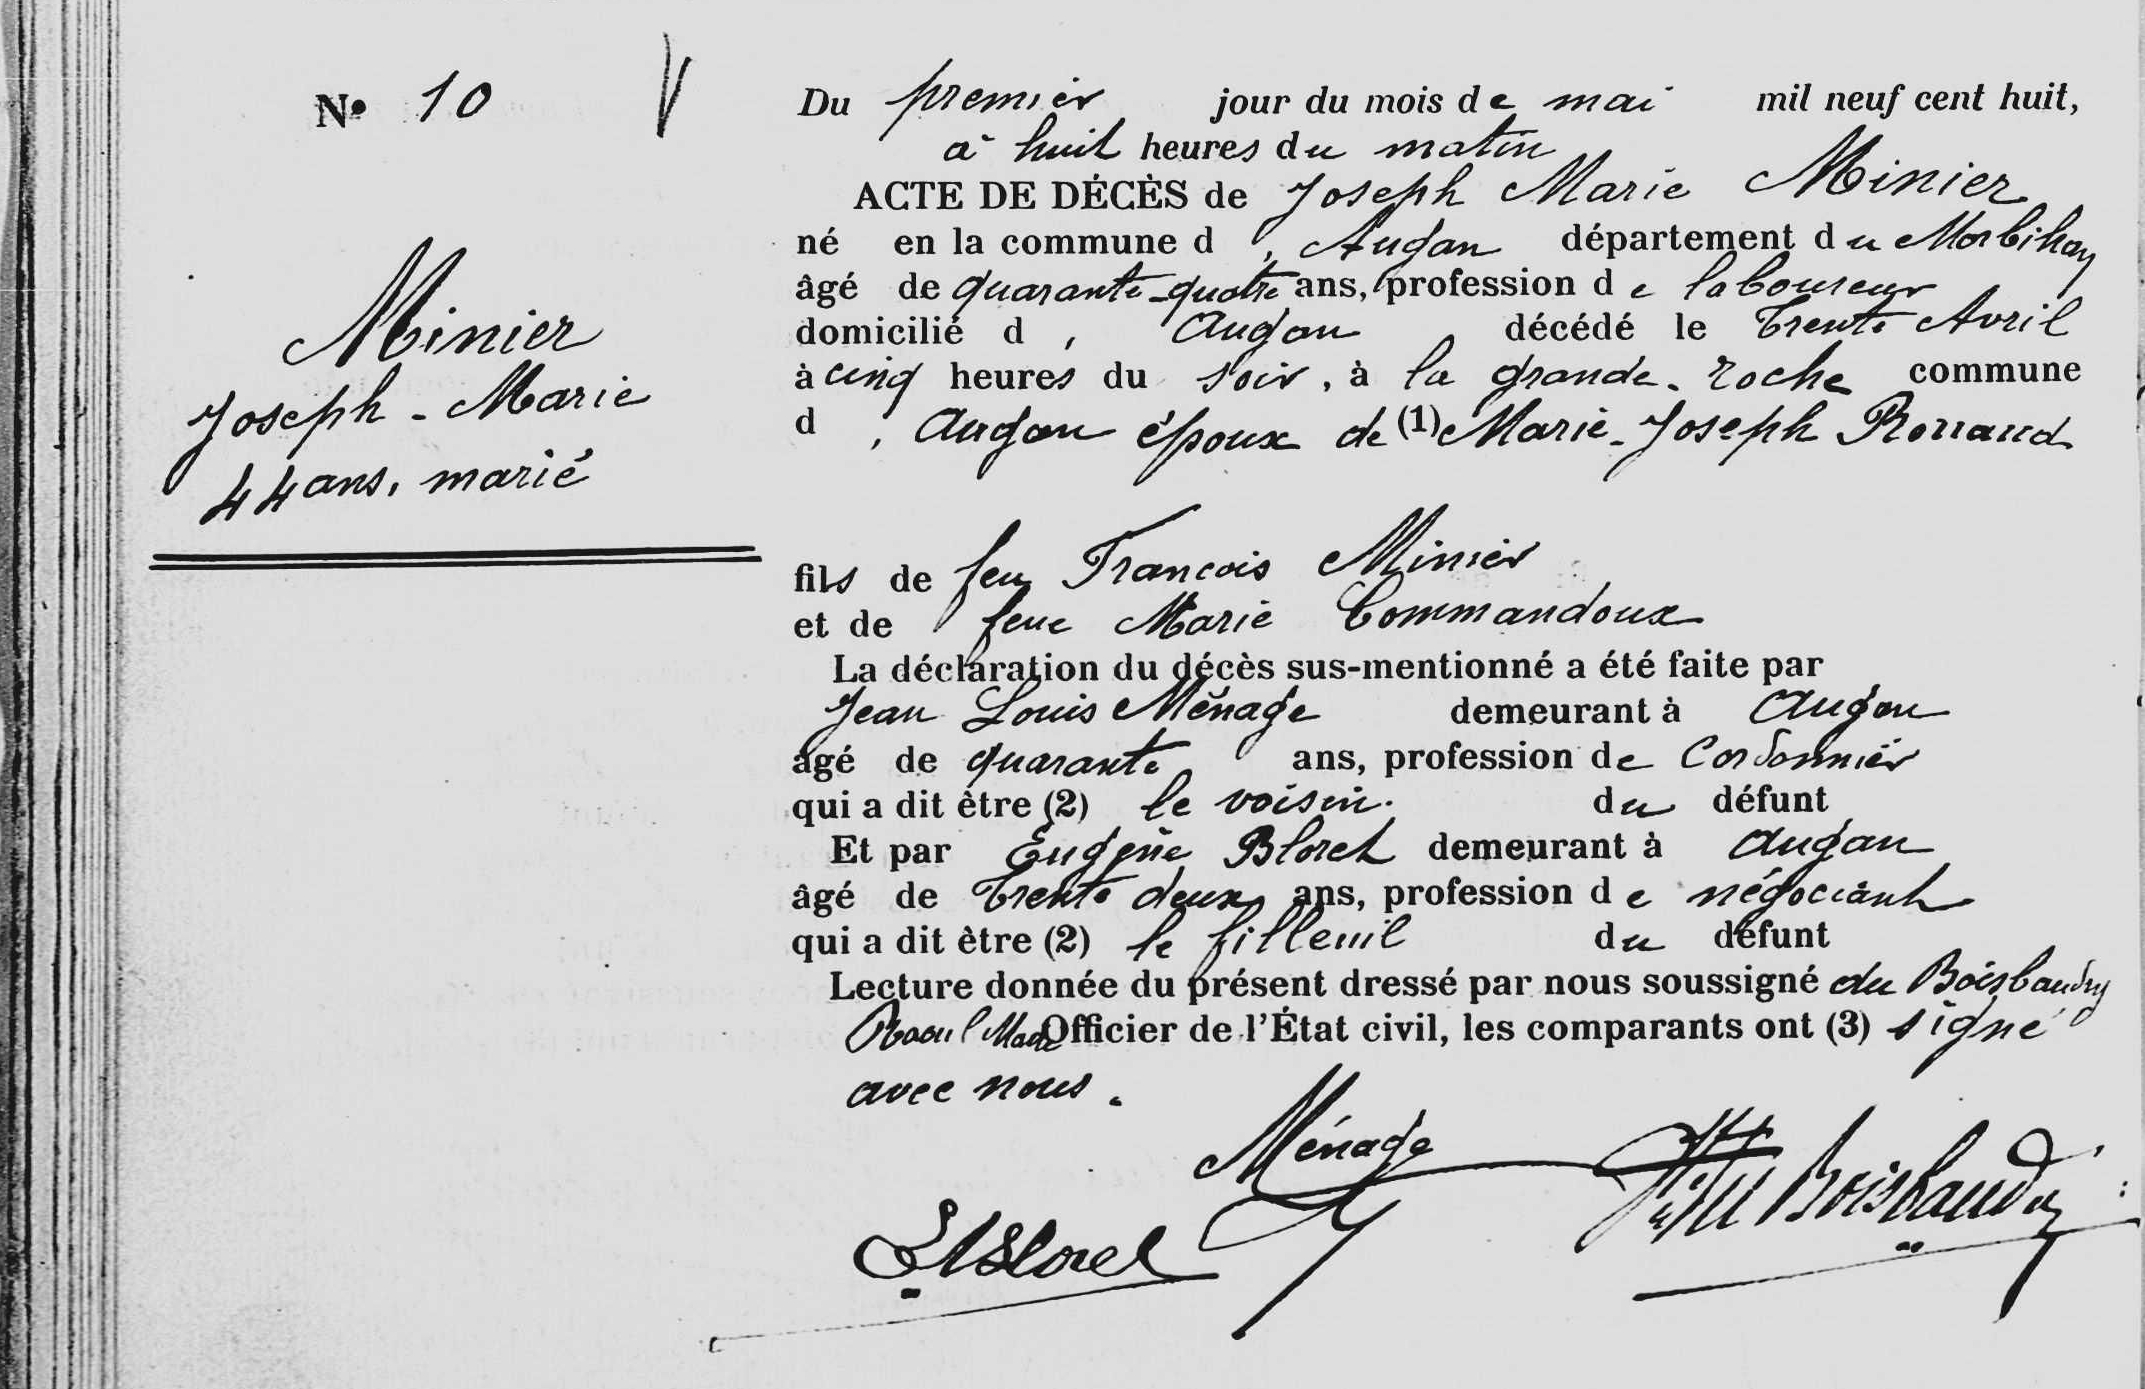 N° 10
Minier
Joseph - Marie
44 ans, marié
Du premier jour du mois de mai mil neuf cent huit,
à huit heures du matin
ACTE DE DÉCÈS de Joseph Marie Minier
né en la commune d' Augan département du Morbihan
âgé de quarante-quatre ans, profession de laboureur
domicilié d' Augan décédé le trente Avril
à cinq heures du soir, à la grande-roche commune
d' Augan époux de (1) Marie-Joseph
fils de feu Francois Minier
et de feue Marie Commandoux
La déclaration du décès sus-mentionné a été faite par
Jean Louis Ménage demeurant à Augan
âgé de quarante ans, profession de Cordonnier
qui a dit être (2) le voisin. du défunt
Et par Eugène Blorel demeurant à Augan
âgé de trente deux ans, profession de négociant
qui a dit être (2) le filleuil du défunt
Lecture donnée du présent dressé par nous soussigné du Boisbaudry
Raoul Marie Officier de l'État civil, les comparants ont (3) signé
avec nous.
Ménage
EBlorel
Boisbaudry